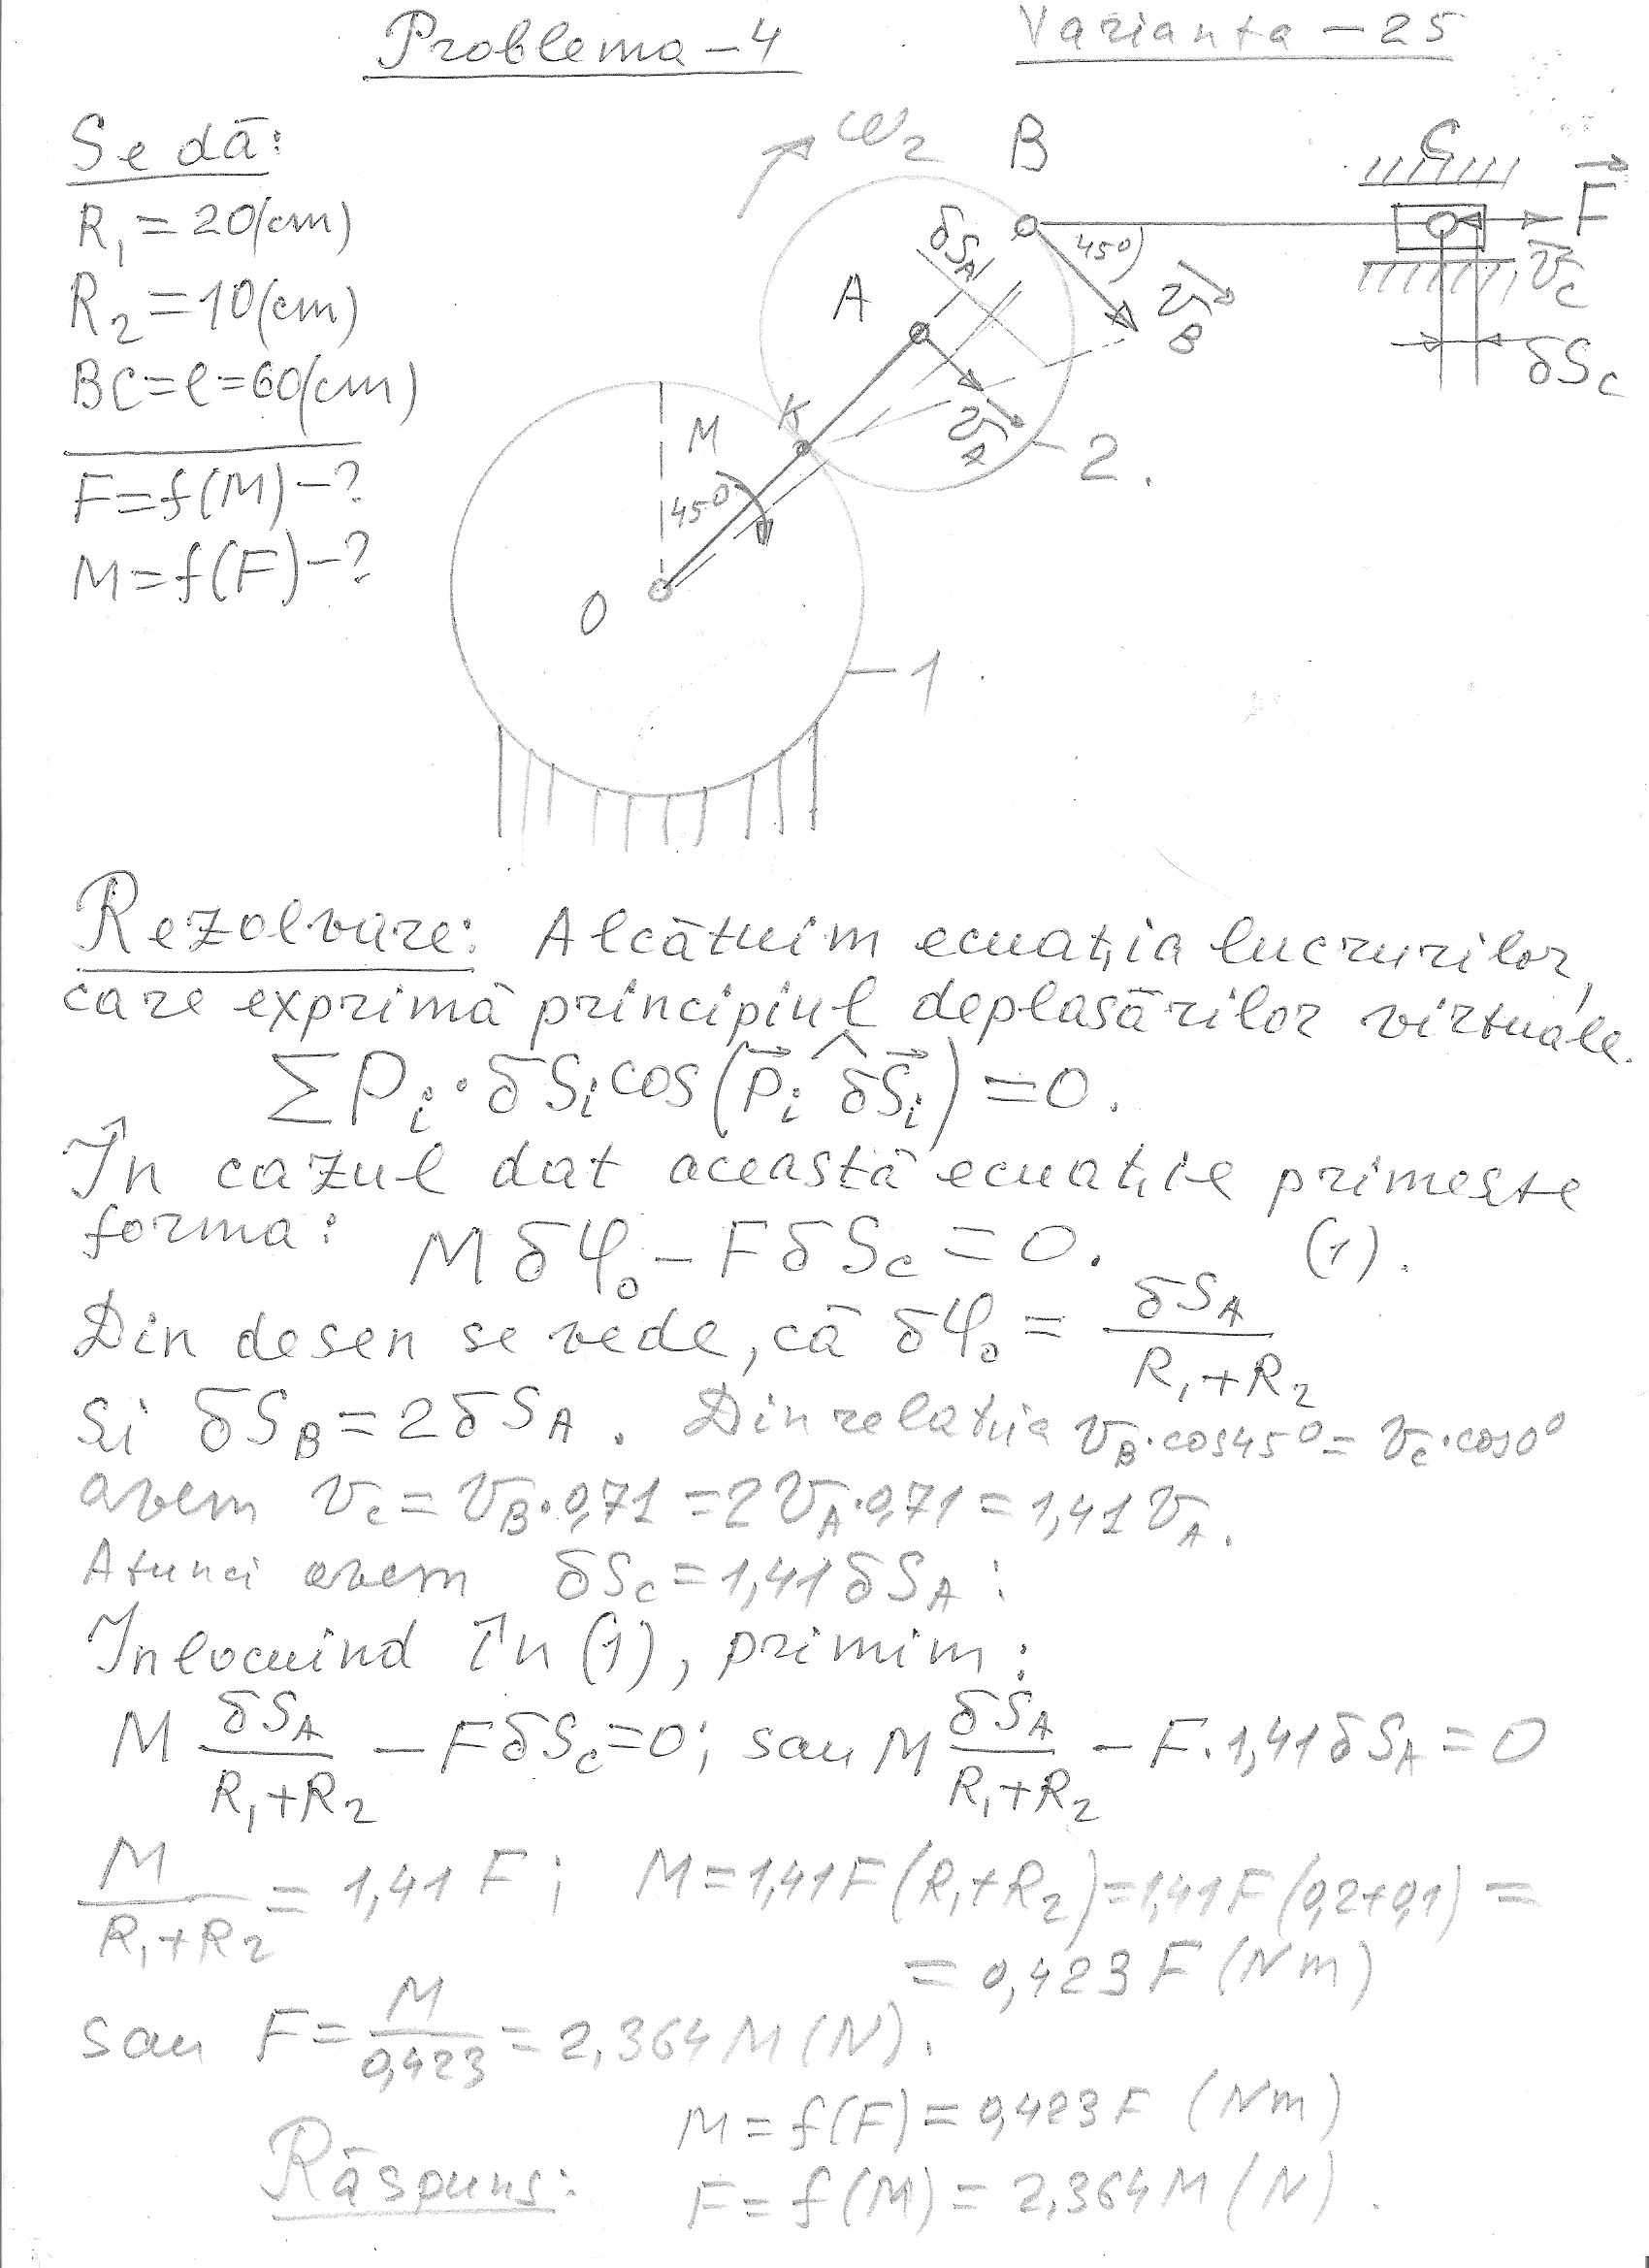 Problema-4
Varianta-25
Se dă:
R₁=20(cm)
R₂=10(cm)
BC=l=60(cm)
F=f(M)-?
M=f(F)-?
ω₂
B
C
F⃗
δS_A
45°
A
v⃗_B
v⃗_C
δS_C
K
M
v⃗_A
2.
45°
O
1
Rezolvare: Alcătuim ecuația lucrurilor,
care exprimă principiul deplasărilor virtuale.
∑Pᵢ·δSᵢcos(P⃗ᵢ^δS⃗ᵢ)=0.
În cazul dat această ecuație primește
forma: Mδφ₀-FδS_C=0. (1).
Din desen se vede, că δφ₀=δS_A/(R₁+R₂)
și δS_B=2δS_A. Din relația v_B·cos45°=v_C·cos0°
avem v_C=v_B·0,71=2v_A·0,71=1,41v_A.
Atunci avem δS_C=1,41δS_A:
Înlocuind în (1), primim:
M δS_A/(R₁+R₂)-FδS_C=0; sau M δS_A/(R₁+R₂)-F·1,41δS_A=0
M/(R₁+R₂)=1,41F; M=1,41F(R₁+R₂)=1,41F(0,2+0,1)=
=0,423F(Nm)
sau F=M/0,423=2,364M(N).
M=f(F)=0,423F (Nm)
Răspuns: F=f(M)=2,364M(N).